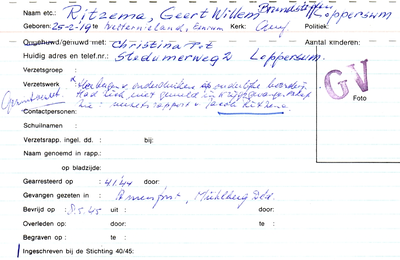 Naam etc.: Ritzema, Geert Willem Brandstoffen Loppersum
Geboren: 25-2-19 te Westernieland, Eenrum Kerk: Geref Politiek:
Ongehuwd/gehuwd met: Christina Pot Aantal kinderen:
Huidig adres en telef.nr.: Stedumerweg 2 Loppersum.
Verzetsgroep :
Verzetswerk : Verbergen onderduikers
Had zich niet gemeld in krijgsgevangenschap
Zie: verzetsrapport v. Jacob Ritzema
GV
Foto
Contactpersonen:
Schuilnamen :
Verzetsrapp. ingel. dd. : bij:
Naam genoemd in rapp.:
op bladzijde:
Gearresteerd op : 4/44 door:
Gevangen gezeten in : Amersfoort, Mühlberg Dld.
Bevrijd op : 8.5.45 uit : door:
Overleden op: door: te :
Begraven op : te :
Ingeschreven bij de Stichting 40/45: